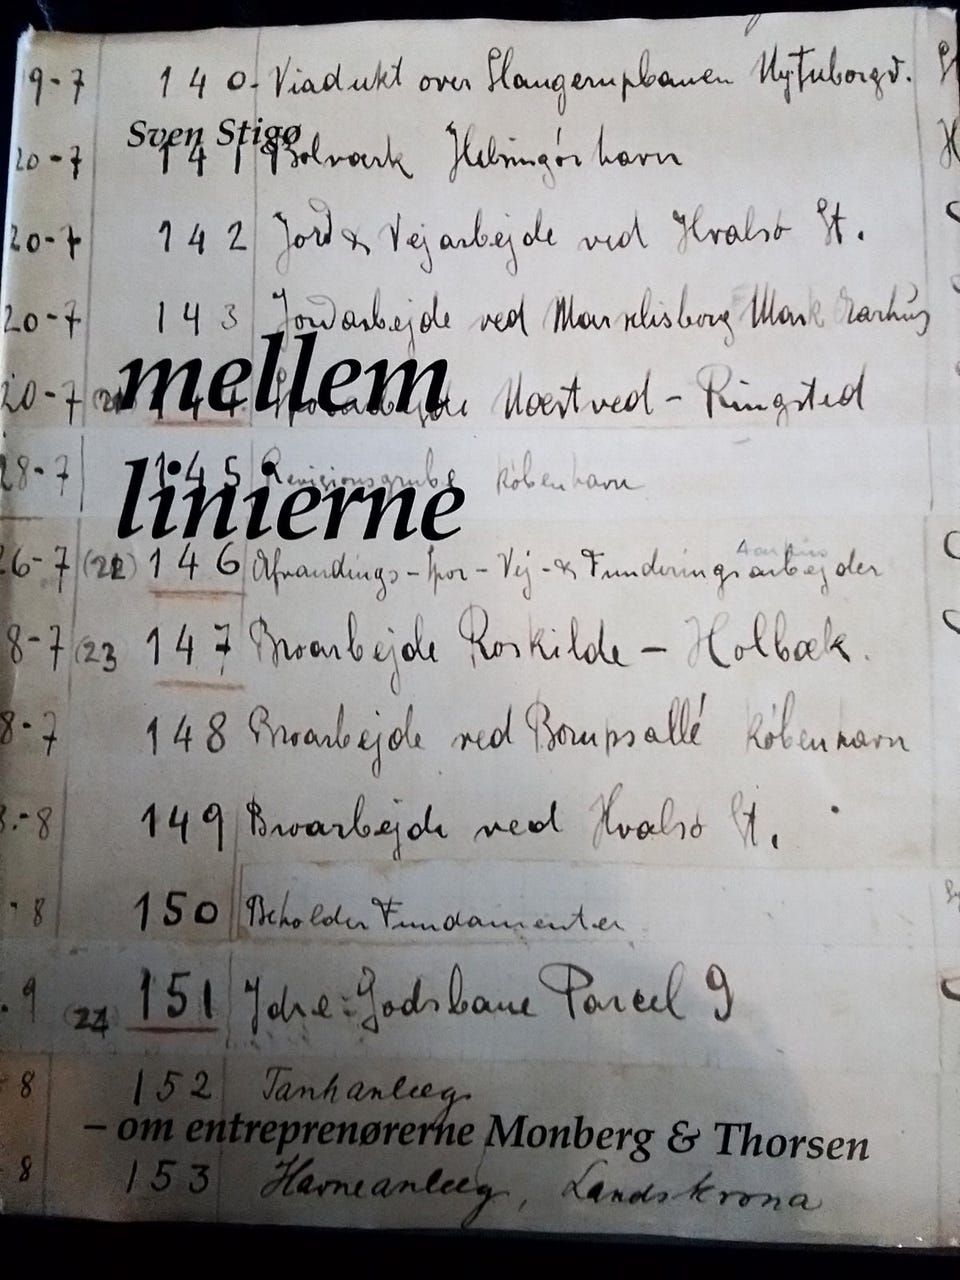 9-7 140- Viadukt over Slangerupbanen Ny Tuborgv.
Sven Stigø
20-7 141 Bolværk Helsingør havn
20-7 142 Jord & Vejarbejde ved Hvalsø St.
20-7 143 Jordarbejde ved Marselisborg Mark Aarhus
mellem
20-7 144 Næstved - Ringsted
28-7 145 Revisionsgrube København
linierne
26-7 (22) 146 Afvandings - Spor - Vej - & Funderingsarbejder
8-7 (23 147 Broarbejde Roskilde - Holbæk.
8-7 148 Broarbejde ved Bernstorffs allé København
8.-8 149 Broarbejde ved Hvalsø St.
. 8 150 Beholder Fundamenter
. 9 (24 151 Ydre: Godsbane Parcel 9
8 152 Tankanlæg
– om entreprenørerne Monberg & Thorsen
8 153 Havneanlæg, Landskrona